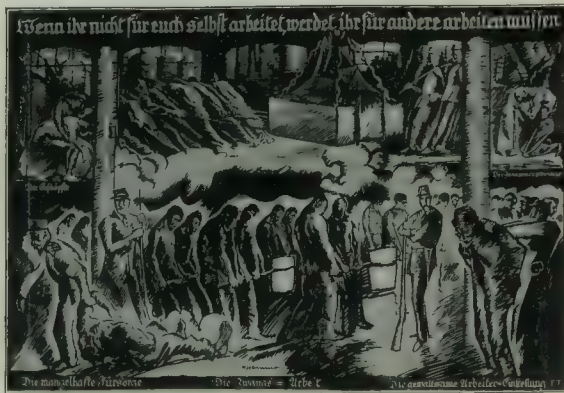 Wenn ihr nicht für euch selbst arbeitet, werdet ihr für andere arbeiten müssen
Die mangelhafte Fürsorge
Die Zwangs = Arbeit
Die gewaltsame Arbeiter-Einstellung